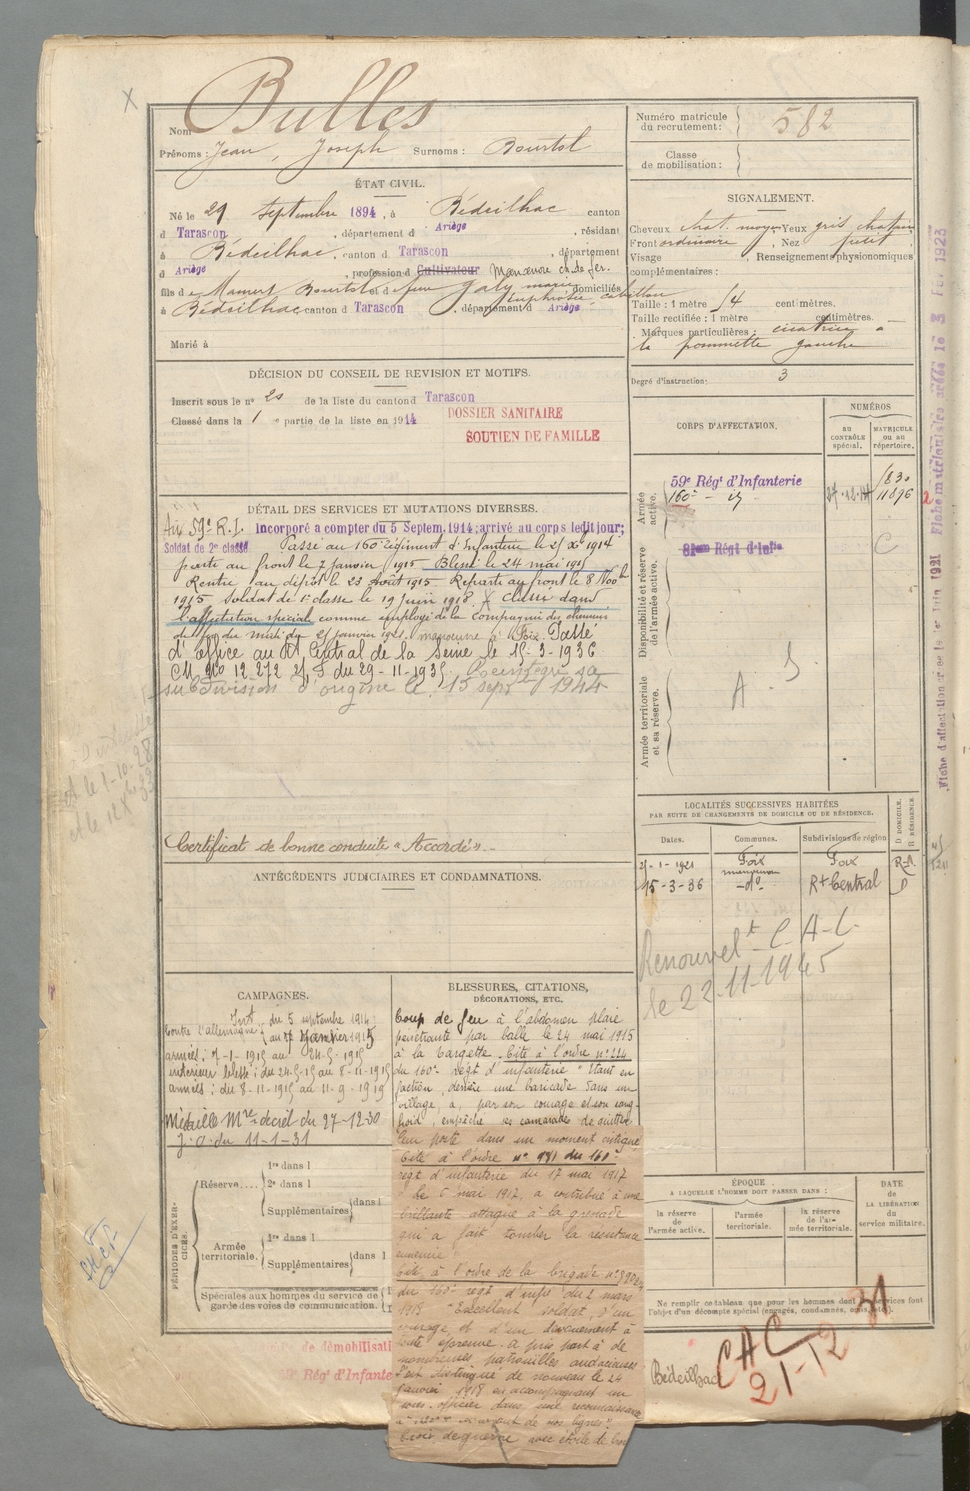 Nom Bulles
Prénoms : Jean, Joseph Surnoms : Bourtol
Numéro matricule
du recrutement : 582
Classe
de mobilisation :
ÉTAT CIVIL.
Né le 29 Septembre 1894, à Bédeilhac canton
d Tarascon, département d Ariège, résidant
à Bédeilhac, canton d Tarascon, département
d Ariège, profession d Cultivateur manœuvre ch. de fer.
fils de Mamert Bourtol et de feue Galy marie domiciliés
à Bédeilhac canton d Tarascon, département d Ariège
Marié à
SIGNALEMENT.
Cheveux chat. moyen Yeux gris chatain
Front ordinaire, Nez petit
Visage , Renseignements physionomiques
complémentaires :
Taille : 1 mètre 54 centimètres.
Taille rectifiée : 1 mètre centimètres.
Marques particulières : cicatrice à
la pommette gauche
Degré d'instruction : 3
DÉCISION DU CONSEIL DE REVISION ET MOTIFS.
Inscrit sous le n° 20 de la liste du canton d Tarascon
Classé dans la 1 re partie de la liste en 1914
DOSSIER SANITAIRE
SOUTIEN DE FAMILLE
CORPS D'AFFECTATION.
NUMÉROS
au
contrôle
spécial.
matricule
ou au
répertoire.
Armée
active.
59e Régt d'Infanterie
160e - d°
11896
Disponibilité et réserve
de l'armée active.
81ème Régt d'Infie
Armée territoriale
et sa réserve.
DÉTAIL DES SERVICES ET MUTATIONS DIVERSES.
59e R.I. Incorporé a compter du 5 Septem. 1914; arrivé au corps ledit jour;
Soldat de 2e classe Passé au 160e régiment d'Infanterie le 25 Xbre 1914
parti au front le 7 janvier 1915 Blessé le 24 mai 1915
Rentré au dépôt le 23 Août 1915 Reparti au front le 8 Novbre
1915 Soldat de 1e classe le 19 juin 1918 X Classé dans
l'affectation spéciale comme employé de la Compagnie des chemins
de fer du midi du 25 janvier 1921. manœuvre à Foix. Passé
d'office au Rt Central de la Seine le 15-3-1936
CM N° 12.272 2/S du 29-11-1935. Réintègre sa
subdivision d'origine le 15 sept 1944
Certificat de bonne conduite "Accordé".-
ANTÉCÉDENTS JUDICIAIRES ET CONDAMNATIONS.
LOCALITÉS SUCCESSIVES HABITÉES
PAR SUITE DE CHANGEMENTS DE DOMICILE OU DE RÉSIDENCE.
Dates. Communes. Subdivisions de région
D. DOMICILE.
R. RÉSIDENCE.
25-1-1921 Foix Foix
15-3-36 -d°- Rt Central D
Renouvelt C A C
le 22-11-1945
CAMPAGNES.
Contre l'allemagne : Int du 5 septembre 1914
au 6 Janvier 1915
armées : 7-1-1915 au 24-5-1915
intérieur blessé : du 24-5-15 au 8-11-1915
armées : du 8-11-1915 au 11-9-1919
Médaille Mre décret du 27-12-30
J.O. du 11-1-31
BLESSURES, CITATIONS,
DÉCORATIONS, ETC.
Coup de feu à l'abdomen plaie
pénétrante par balle le 24 mai 1915
à la Targette. Cité à l'ordre n° 224
du 160e régt d'infanterie "Etant en
faction, derrière une baricade dans un
village, a, par son courage et son sang-
froid, empêché ses camarades de quitter
leur poste dans un moment critique
Cité à l'ordre n° 991 du 160e
régt d'infanterie du 17 mai 1917
"le 5 mai 1917, a contribué à une
brillante attaque à la grenade
qui a fait tomber la resistance
ennemie"
Cité à l'ordre de la brigade
du 160e régt d'infie du 2 mars
1918 "Excellent soldat, d'un
courage et d'un dévouement à
toute épreuve. a pris part à de
nombreuses patrouilles audacieuses
S'est distingué de nouveau le 24
janvier 1918 en accompagnant un
sous-officier dans une reconnaissance
en avant de nos lignes"
Croix de guerre avec étoile de
PÉRIODES D'EXERCICES.
Réserve....
1re dans l
2e dans l
Supplémentaires dans l
Armée
territoriale.
1re dans l
Supplémentaires dans l
Spéciales aux hommes du service de
garde des voies de communication.
ÉPOQUE
À LAQUELLE L'HOMME DOIT PASSER DANS :
la réserve
de l'armée active.
l'armée
territoriale.
la réserve
de l'ar-
mée territoriale.
DATE
de
LA LIBÉRATION
du
service militaire.
Ne remplir ce tableau que pour les hommes dont les services font
l'objet d'un décompte spécial (engagés, condamnés, omis, etc.).
de démobilisati
59e Rég' d'Infante
Bédeilhac
CAC
21-12 31